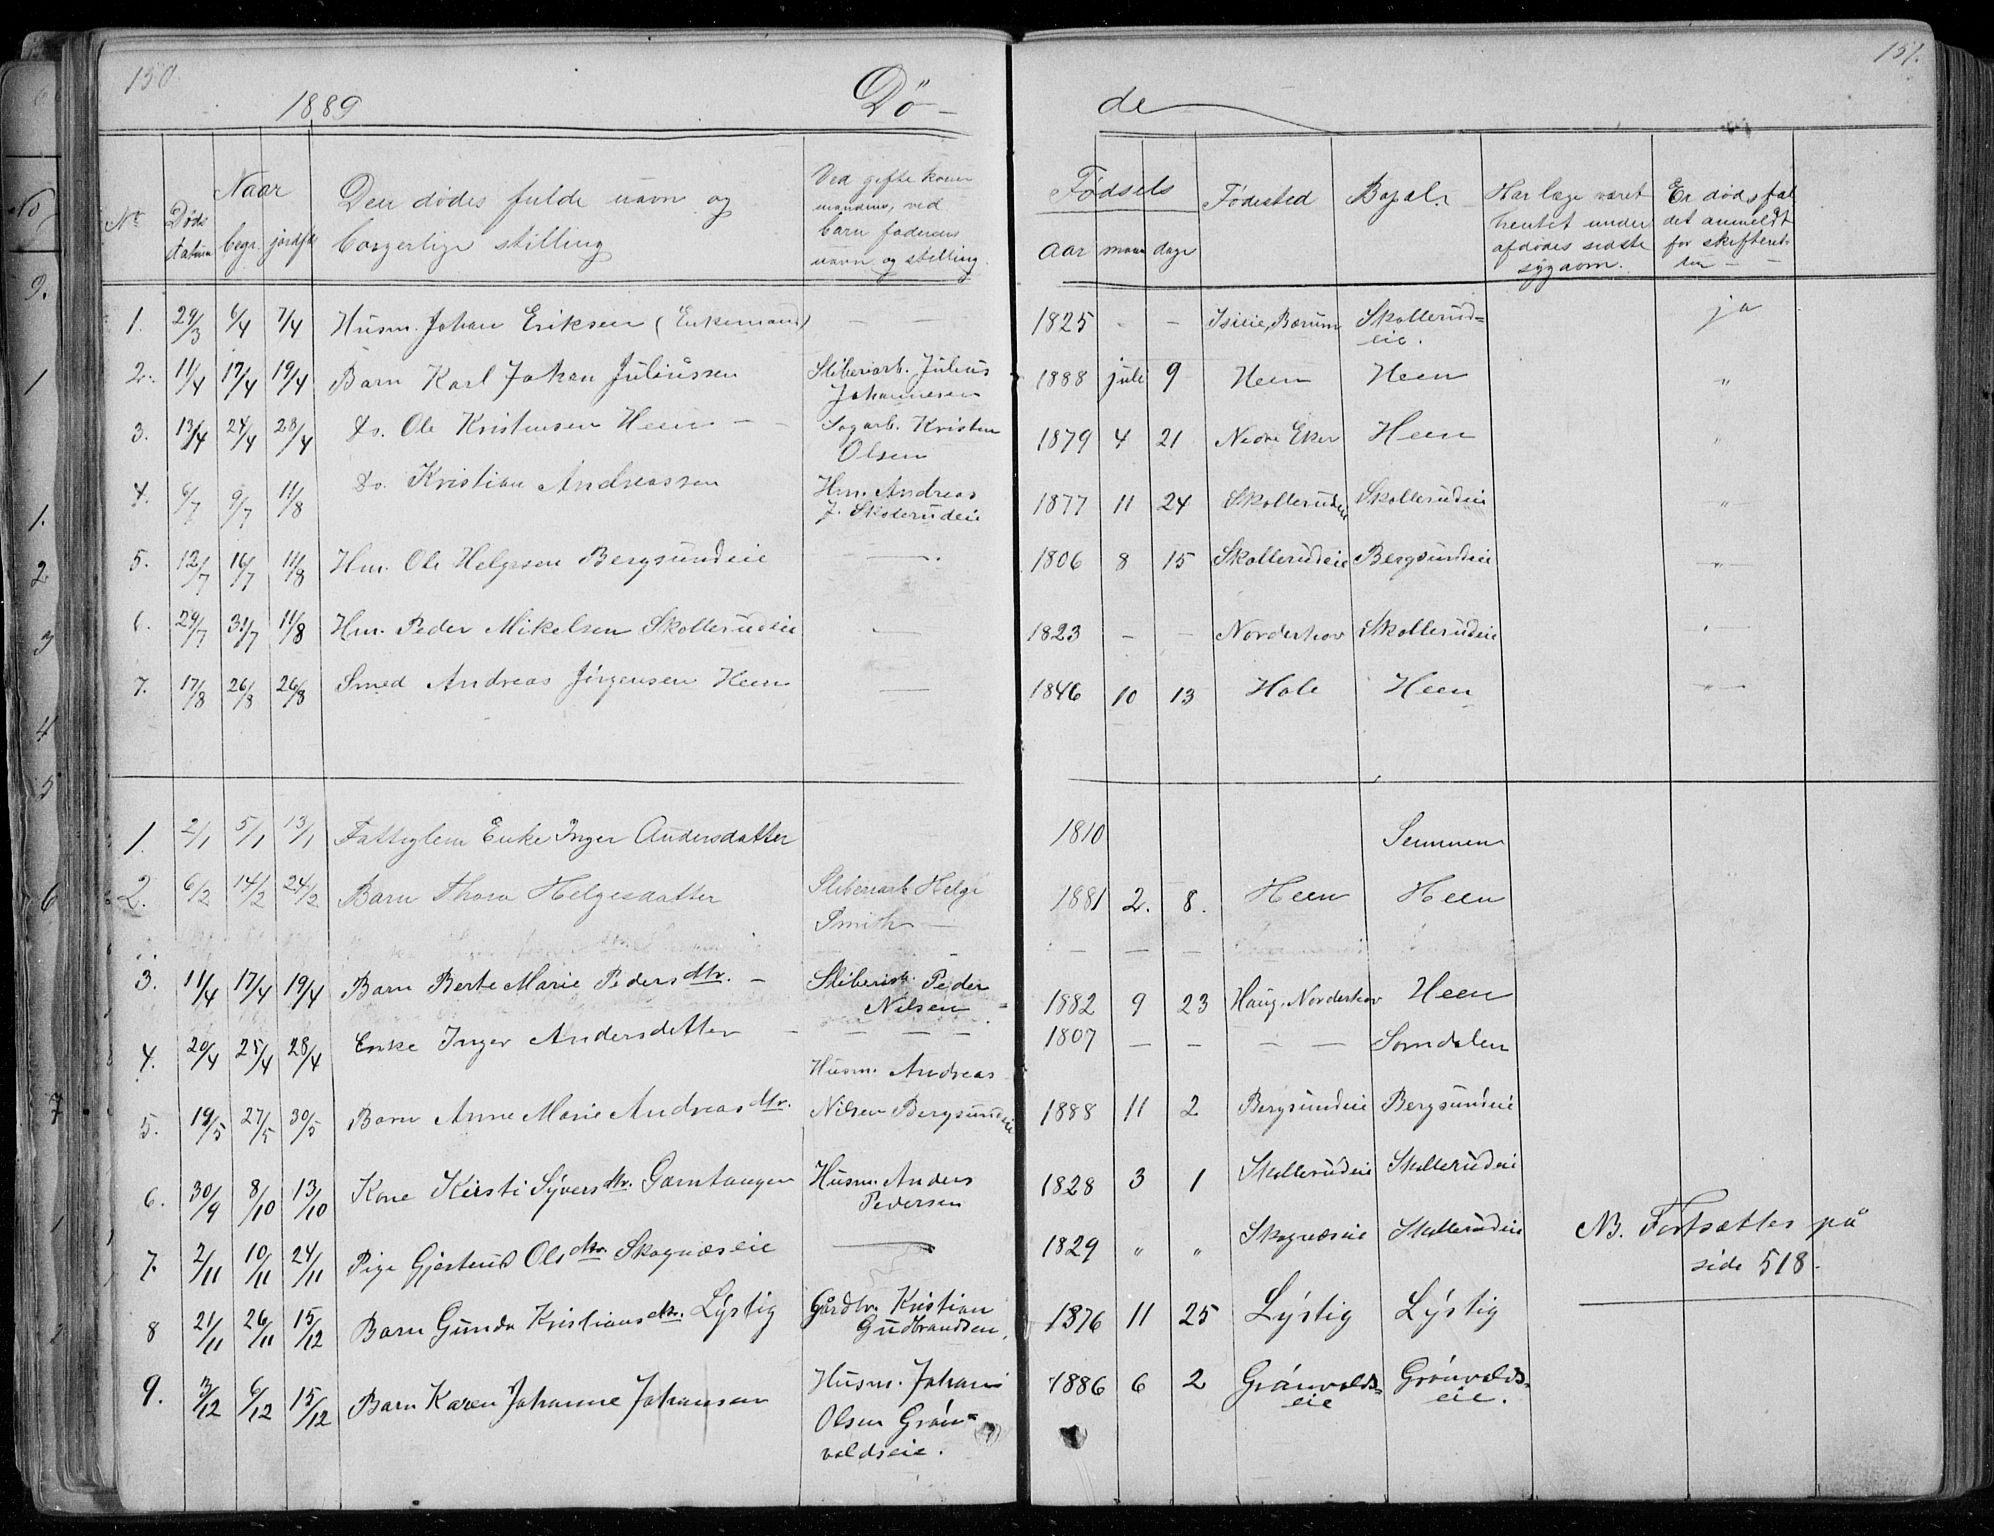 150.
1889
Dö-
No
Naar
Døds datum
begr.
jordf.
Den dødes fulde navn og
borgerlige stilling
Ved gifte koner
mandens, ved
barn faderens
navn og stilling.
1. 29/3 6/4 7/4 Husm. Johan Eriksen (Enkemand) — —
2. 11/4 17/4 19/4 Barn Karl Johan Juliussen Sliberiarb. Julius
Johannesen
3. 13/4 24/4 28/4 Do. Ole Kristensen Heen — - Sagarb. Kristen
Olsen
4. 6/7 9/7 11/8 Do. Kristian Andreassen Hm. Andreas
J. Skollerudeie
5. 12/7 16/7 11/8 Hm. Ole Helgesen Bergsundeie —
6. 29/7 31/7 11/8 Hm. Peder Mikelsen Skollerudeie —
7. 17/8 26/8 26/8 Smed Andreas Jörgensen Heen —
1. 2/1 5/1 13/1 Fattiglem Enke Inger Andersdatter
2. 6/2 14/2 24/2 Barn Thora Helgesdatter Sliberiarb Helge
Smith —
3. 11/4 17/4 19/4 Barn Berte Marie Pedersdtr. — Sliberiarb. Peder
Nilsen
4. 20/4 25/4 28/4 Enke Inger Andersdatter — — — —
5. 19/5 27/5 30/5 Barn Anne Marie Andreasdtr. Husm. Andreas
Nilsen Bergsundeie
6. 30/9 8/10 13/10 Kone Kirsti Syversdtr. Garntangen Husm. Anders
Pedersen
7. 2/11 10/11 24/11 Pige Gjertrud Olsdtr. Skognæseie —
8 21/11 26/11 15/12 Barn Gunda Kristiansdtr. Lystig Gårdbr. Kristian
Gudbrandsen.
9. 3/12 6/12 15/12 Barn Karen Johanne Johansen Husm. Johan
Olsen Grön-
voldseie.
151.
de
Fødsels
aar maan dage
Fødested
Bopæl.
Har læge været
hentet under
afdødes sidste
sygdom.
Er dødsfal
det anmeldt
for skifteret-
ten —
1825 - - Isieie, Bærum Skollerud-
eie. ja
1888 juli 9 Heen Heen "
1879 4 21 Nedre Eker Heen "
1877 11 24 Skollerudeie Skollerudeie "
1806 8 15 Skollerudeie Bergsundeie "
1823 - - Norderhov Skollerudeie "
1846 10 13 Hole Heen "
1810 Semmen
1881 2. 8. Heen Heen
1882 9 23 Haug, Norderhov Heen
1807 — — — — Somdalen
1888 11 2 Bergsundeie Bergsundeie
1828 3 1 Skollerudeie Skollerudeie
1829 " " Skognæseie Skollerudeie
NB. Fortsættes på
side 518.
1876 11 25 Lystig Lystig
1886 6 2 Grönvolds-
eie Grönvolds-
eie.